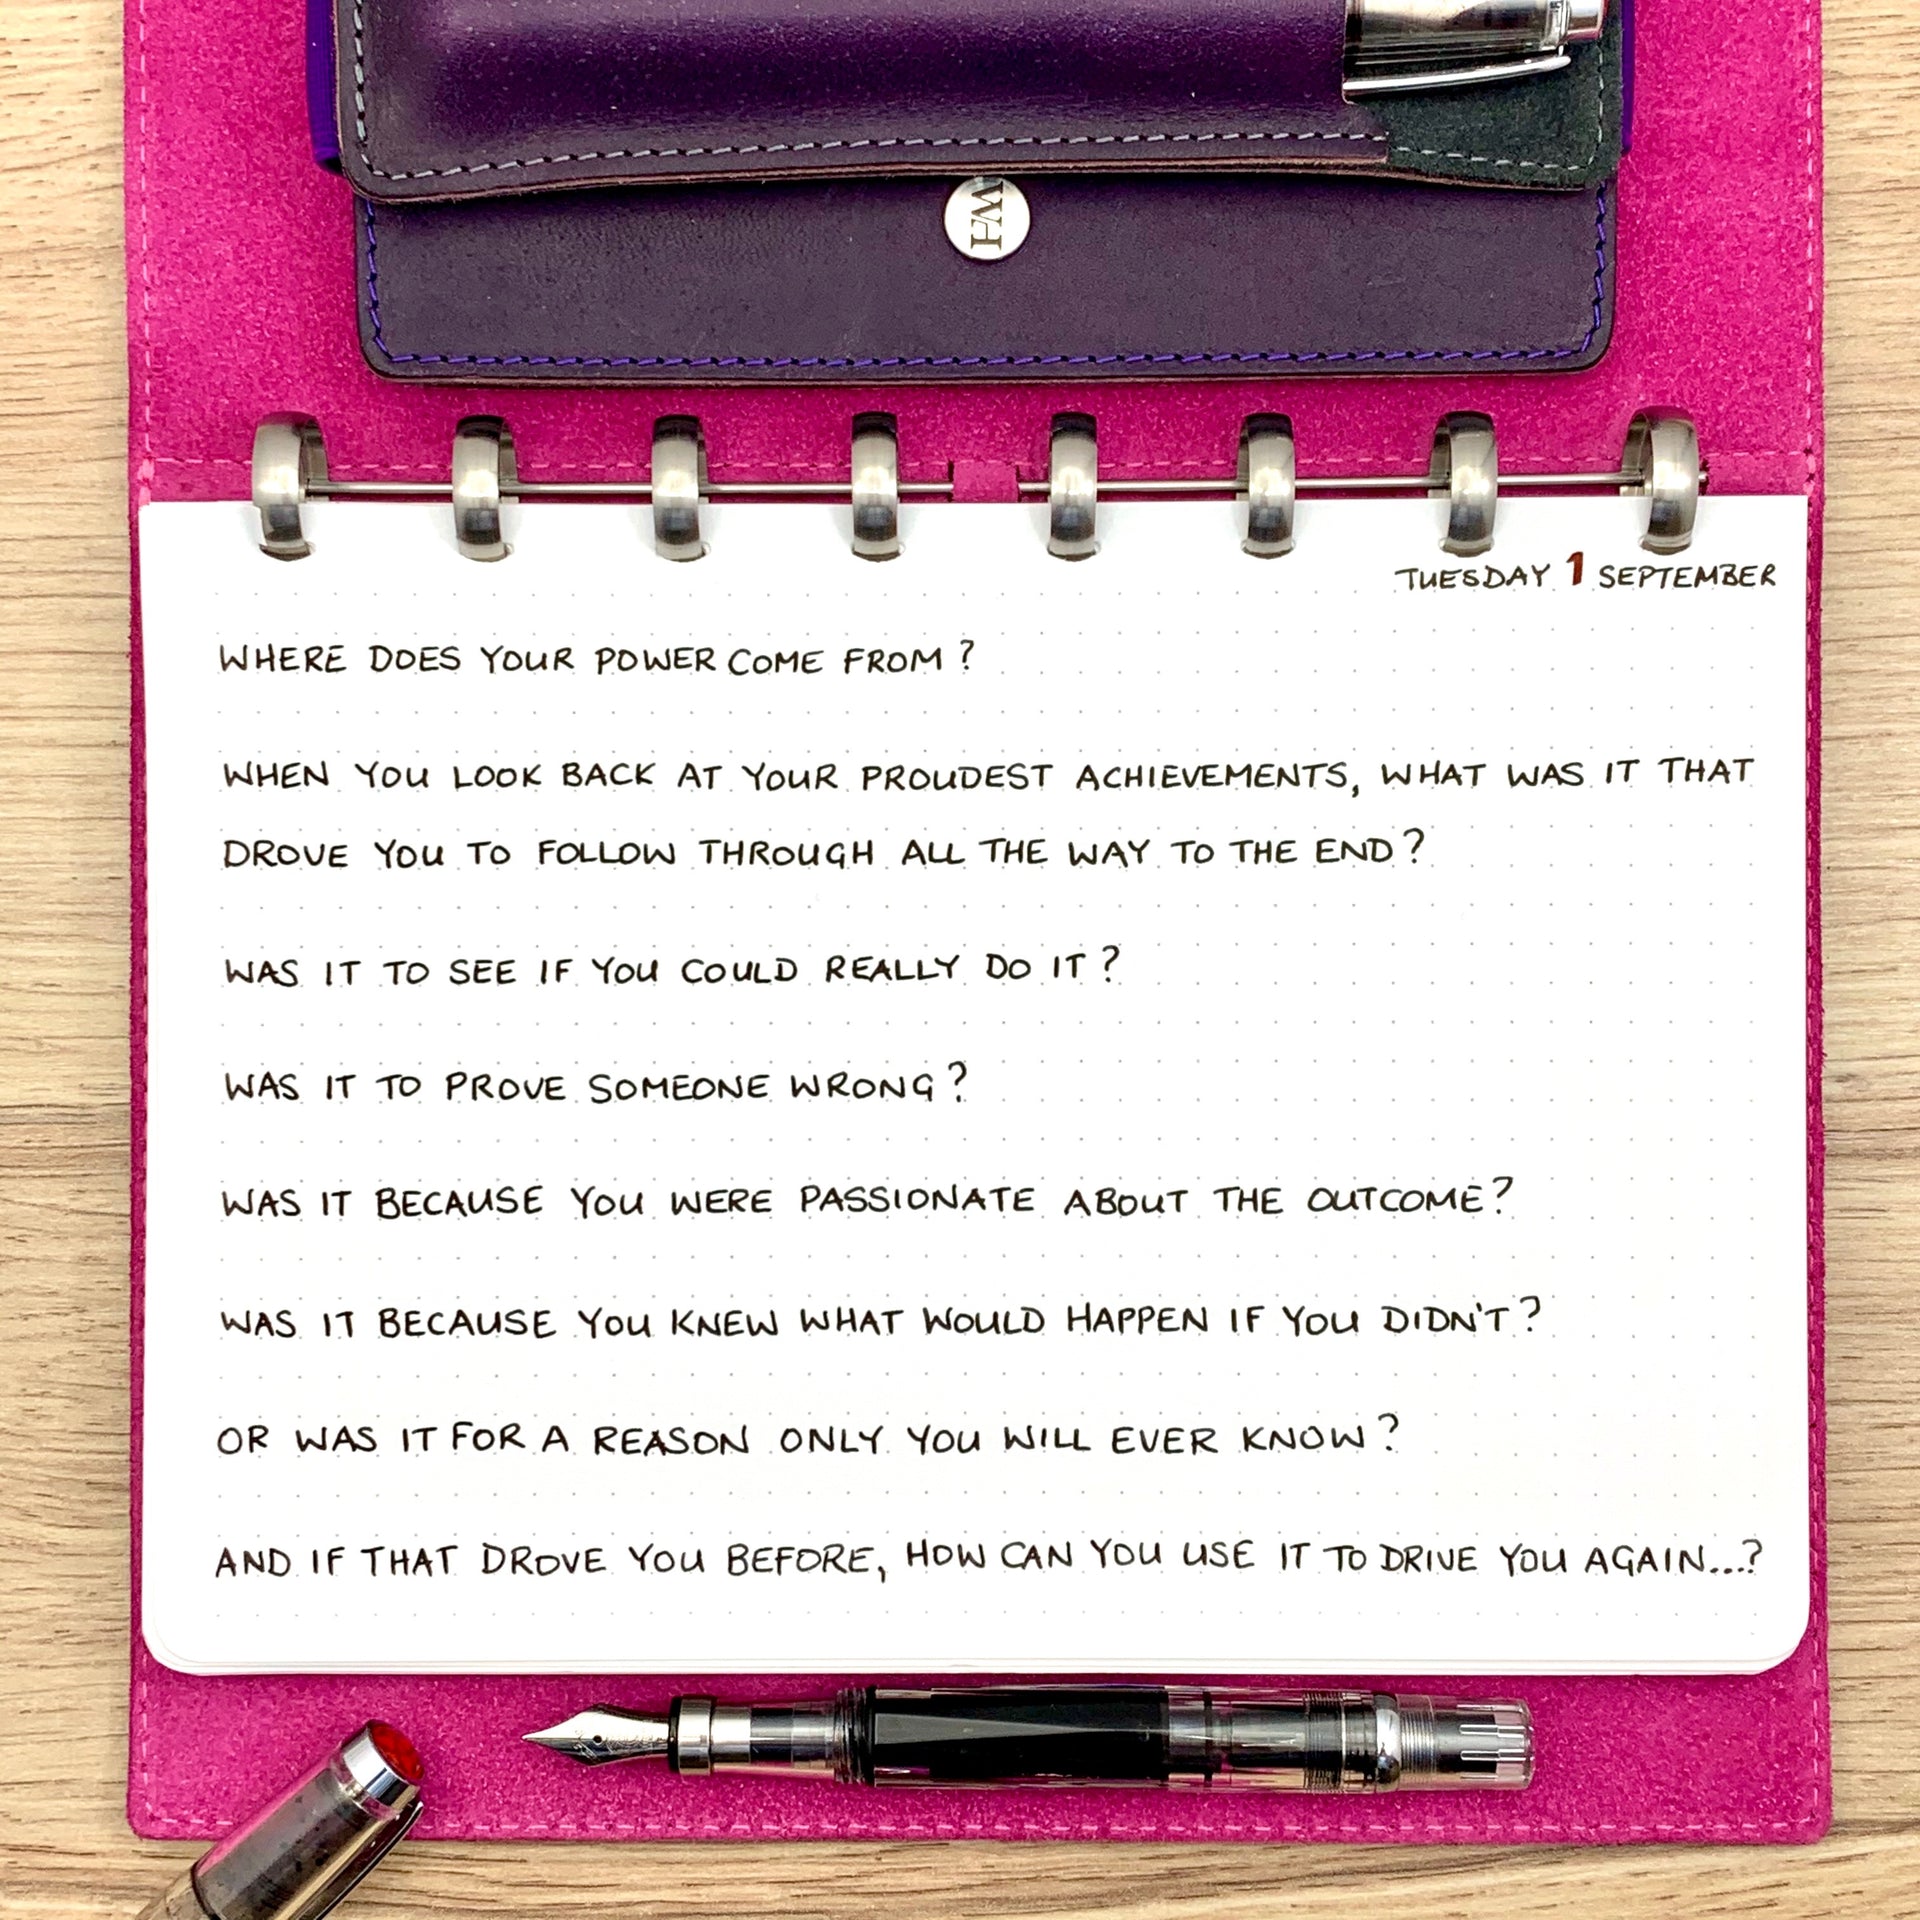 WH
TUESDAY 1 SEPTEMBER
WHERE DOES YOUR POWER COME FROM?
WHEN YOU LOOK BACK AT YOUR PROUDEST ACHIEVEMENTS, WHAT WAS IT THAT
DROVE YOU TO FOLLOW THROUGH ALL THE WAY TO THE END?
WAS IT TO SEE IF YOU COULD REALLY DO IT?
WAS IT TO PROVE SOMEONE WRONG?
WAS IT BECAUSE YOU WERE PASSIONATE ABOUT THE OUTCOME?
WAS IT BECAUSE YOU KNEW WHAT WOULD HAPPEN IF YOU DIDN'T?
OR WAS IT FOR A REASON ONLY YOU WILL EVER KNOW?
AND IF THAT DROVE YOU BEFORE, HOW CAN YOU USE IT TO DRIVE YOU AGAIN...?